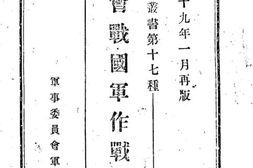 十九年一月再版
叢書第十七種
會戰國軍作戰
軍事委員會軍